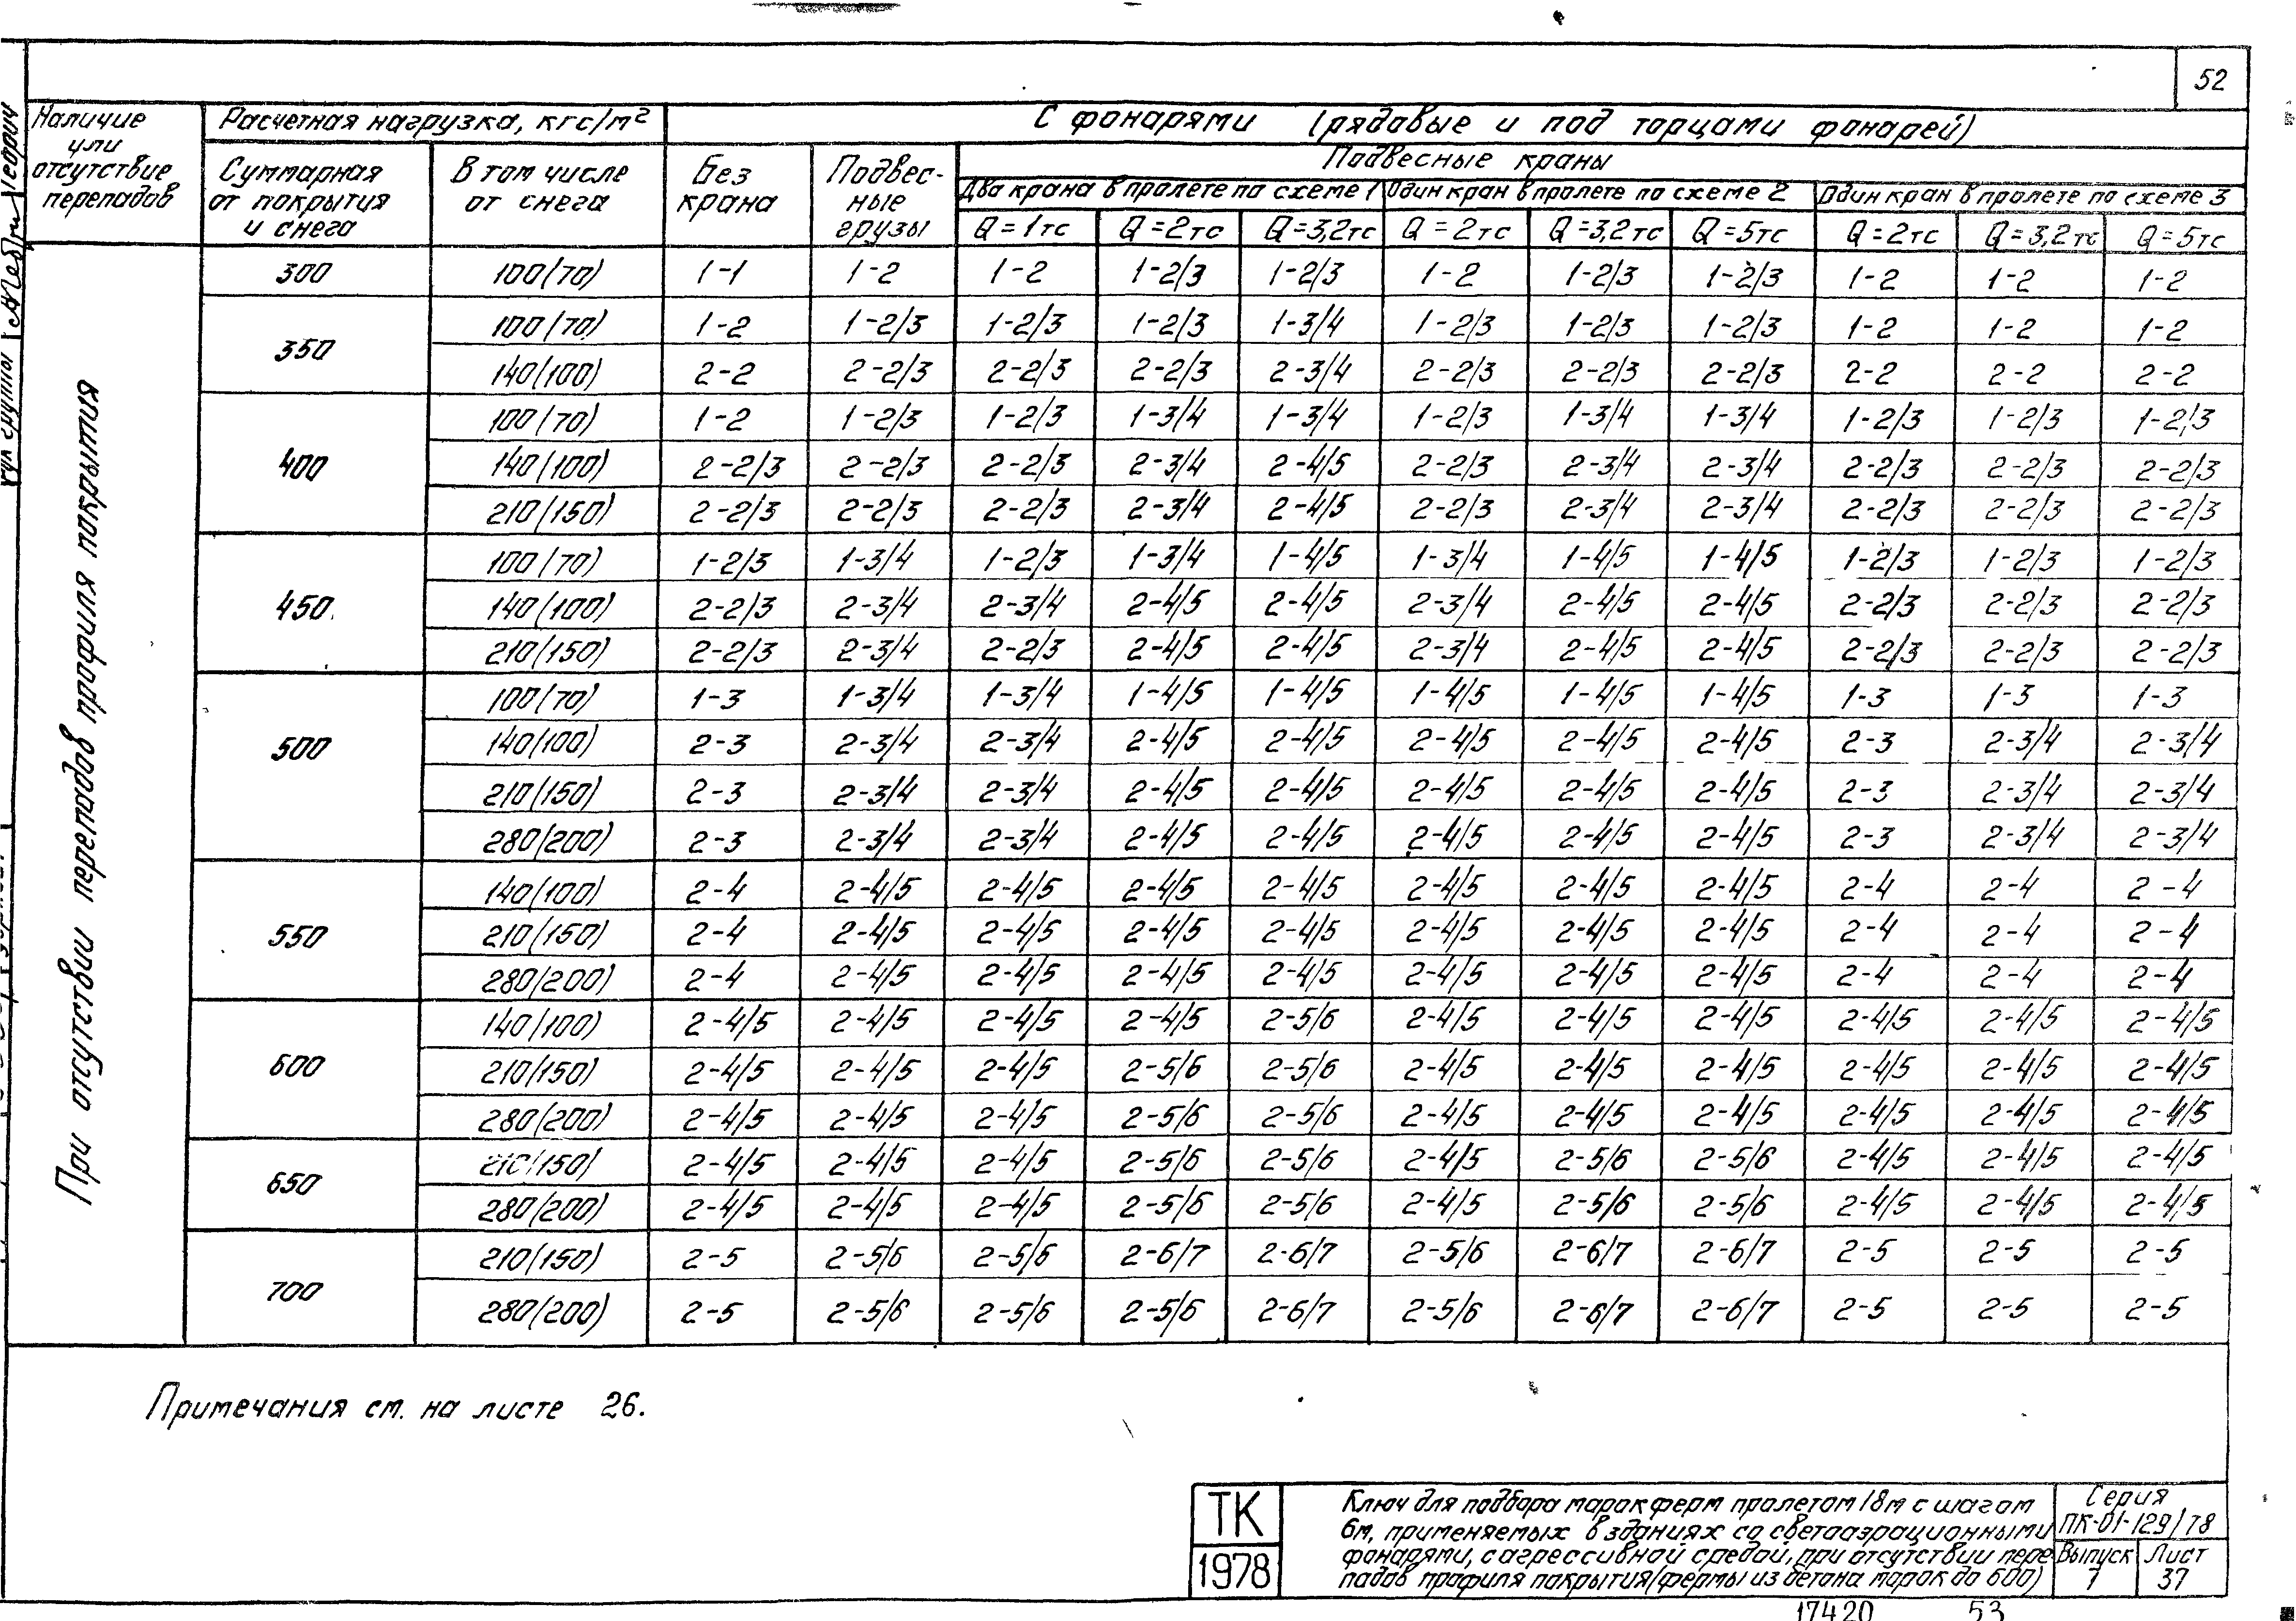 52
Наличие или отсутствие перепадов | Расчетная нагрузка, кгс/м² | С фонарями (рядовые и под торцами фонарей)
Суммарная от покрытия и снега | В том числе от снега | Без крана | Подвесные грузы | Подвесные краны
Два крана в пролете по схеме 1 | Один кран в пролете по схеме 2 | Один кран в пролете по схеме 3
Q=1тс | Q=2тс | Q=3,2тс | Q=2тс | Q=3,2тс | Q=5тс | Q=2тс | Q=3,2тс | Q=5тс
При отсутствии перепадов профиля покрытия
300 | 100(70) | 1-1 | 1-2 | 1-2 | 1-2/3 | 1-2/3 | 1-2 | 1-2/3 | 1-2/3 | 1-2 | 1-2 | 1-2
350 | 100(70) | 1-2 | 1-2/3 | 1-2/3 | 1-2/3 | 1-3/4 | 1-2/3 | 1-2/3 | 1-2/3 | 1-2 | 1-2 | 1-2
140(100) | 2-2 | 2-2/3 | 2-2/3 | 2-2/3 | 2-3/4 | 2-2/3 | 2-2/3 | 2-2/3 | 2-2 | 2-2 | 2-2
400 | 100(70) | 1-2 | 1-2/3 | 1-2/3 | 1-3/4 | 1-3/4 | 1-2/3 | 1-3/4 | 1-3/4 | 1-2/3 | 1-2/3 | 1-2/3
140(100) | 2-2/3 | 2-2/3 | 2-2/3 | 2-3/4 | 2-4/5 | 2-2/3 | 2-3/4 | 2-3/4 | 2-2/3 | 2-2/3 | 2-2/3
210(150) | 2-2/3 | 2-2/3 | 2-2/3 | 2-3/4 | 2-4/5 | 2-2/3 | 2-3/4 | 2-3/4 | 2-2/3 | 2-2/3 | 2-2/3
450 | 100(70) | 1-2/3 | 1-3/4 | 1-2/3 | 1-3/4 | 1-4/5 | 1-3/4 | 1-4/5 | 1-4/5 | 1-2/3 | 1-2/3 | 1-2/3
140(100) | 2-2/3 | 2-3/4 | 2-3/4 | 2-4/5 | 2-4/5 | 2-3/4 | 2-4/5 | 2-4/5 | 2-2/3 | 2-2/3 | 2-2/3
210(150) | 2-2/3 | 2-3/4 | 2-2/3 | 2-4/5 | 2-4/5 | 2-3/4 | 2-4/5 | 2-4/5 | 2-2/3 | 2-2/3 | 2-2/3
500 | 100(70) | 1-3 | 1-3/4 | 1-3/4 | 1-4/5 | 1-4/5 | 1-4/5 | 1-4/5 | 1-4/5 | 1-3 | 1-3 | 1-3
140(100) | 2-3 | 2-3/4 | 2-3/4 | 2-4/5 | 2-4/5 | 2-4/5 | 2-4/5 | 2-4/5 | 2-3 | 2-3/4 | 2-3/4
210(150) | 2-3 | 2-3/4 | 2-3/4 | 2-4/5 | 2-4/5 | 2-4/5 | 2-4/5 | 2-4/5 | 2-3 | 2-3/4 | 2-3/4
280(200) | 2-3 | 2-3/4 | 2-3/4 | 2-4/5 | 2-4/5 | 2-4/5 | 2-4/5 | 2-4/5 | 2-3 | 2-3/4 | 2-3/4
550 | 140(100) | 2-4 | 2-4/5 | 2-4/5 | 2-4/5 | 2-4/5 | 2-4/5 | 2-4/5 | 2-4/5 | 2-4 | 2-4 | 2-4
210(150) | 2-4 | 2-4/5 | 2-4/5 | 2-4/5 | 2-4/5 | 2-4/5 | 2-4/5 | 2-4/5 | 2-4 | 2-4 | 2-4
280(200) | 2-4 | 2-4/5 | 2-4/5 | 2-4/5 | 2-4/5 | 2-4/5 | 2-4/5 | 2-4/5 | 2-4 | 2-4 | 2-4
600 | 140(100) | 2-4/5 | 2-4/5 | 2-4/5 | 2-4/5 | 2-5/6 | 2-4/5 | 2-4/5 | 2-4/5 | 2-4/5 | 2-4/5 | 2-4/5
210(150) | 2-4/5 | 2-4/5 | 2-4/5 | 2-5/6 | 2-5/6 | 2-4/5 | 2-4/5 | 2-4/5 | 2-4/5 | 2-4/5 | 2-4/5
280(200) | 2-4/5 | 2-4/5 | 2-4/5 | 2-5/6 | 2-5/6 | 2-4/5 | 2-4/5 | 2-4/5 | 2-4/5 | 2-4/5 | 2-4/5
650 | 210(150) | 2-4/5 | 2-4/5 | 2-4/5 | 2-5/6 | 2-5/6 | 2-4/5 | 2-5/6 | 2-5/6 | 2-4/5 | 2-4/5 | 2-4/5
280(200) | 2-4/5 | 2-4/5 | 2-4/5 | 2-5/6 | 2-5/6 | 2-4/5 | 2-5/6 | 2-5/6 | 2-4/5 | 2-4/5 | 2-4/5
700 | 210(150) | 2-5 | 2-5/6 | 2-5/6 | 2-6/7 | 2-6/7 | 2-5/6 | 2-6/7 | 2-6/7 | 2-5 | 2-5 | 2-5
280(200) | 2-5 | 2-5/6 | 2-5/6 | 2-5/6 | 2-6/7 | 2-5/6 | 2-6/7 | 2-6/7 | 2-5 | 2-5 | 2-5
Примечания см. на листе 26.
ТК
1978
Ключ для подбора марок ферм пролетом 18м с шагом
6м, применяемых в зданиях со светоаэрационными
фонарями, с агрессивной средой, при отсутствии пере
падов профиля покрытия (фермы из бетона марок до 600)
Серия
ПК-01-129/78
Выпуск 7
Лист 37
17420 53